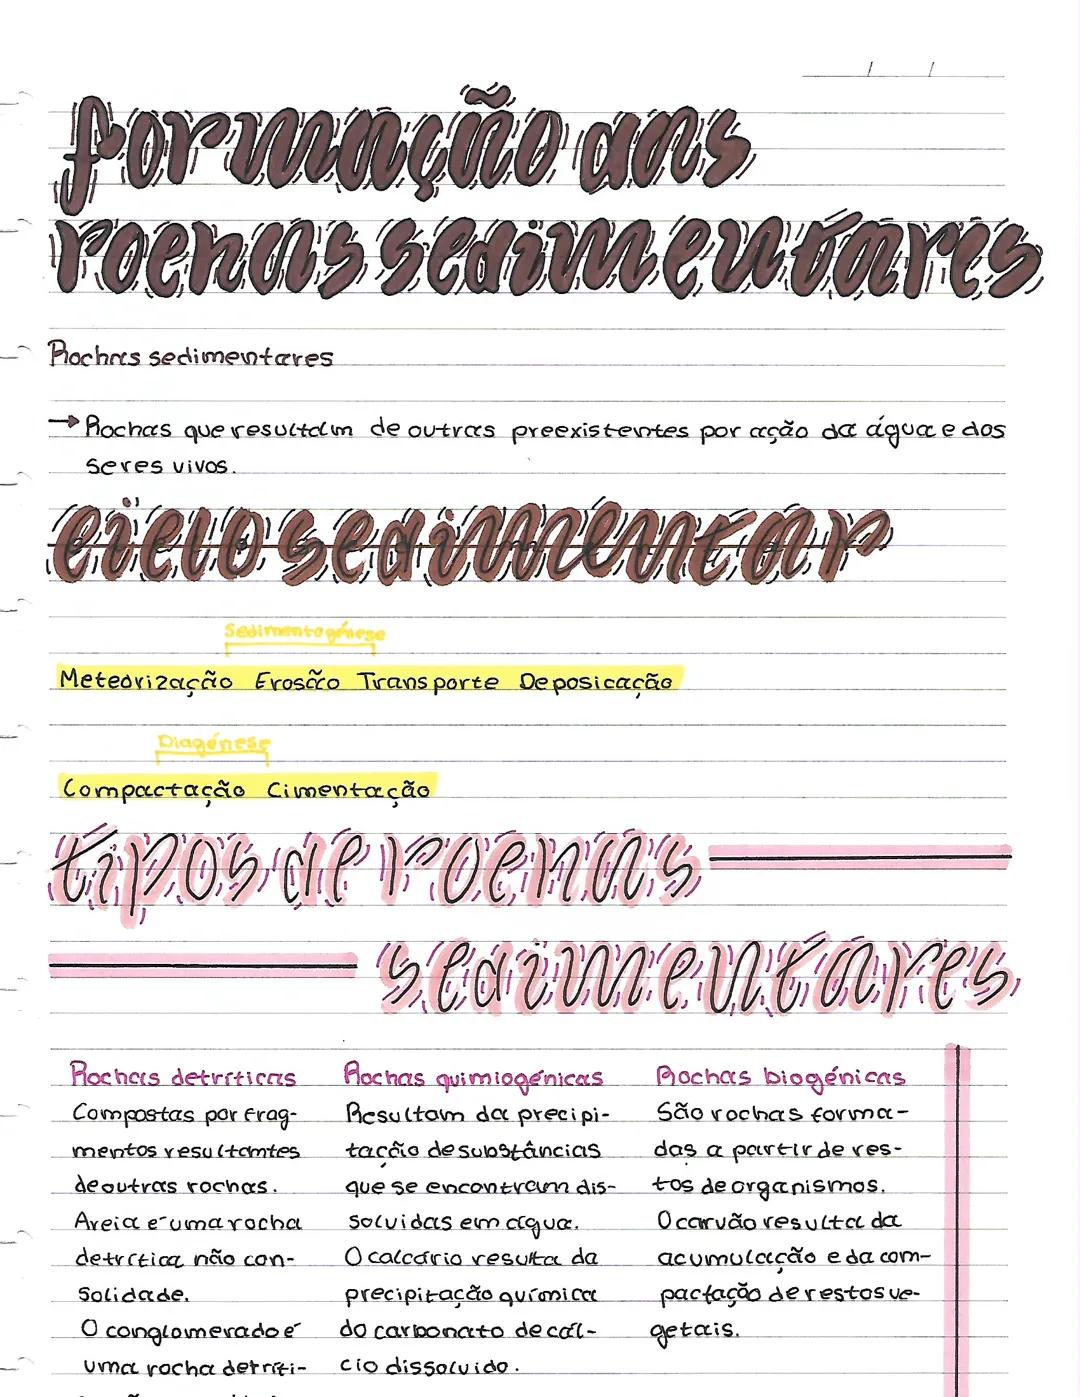 formação das
rochas sedimentares
Rochas sedimentares
→ Rochas que resultam de outras preexistentes por ação da água e dos
seres vivos.
ciclo sedimentar
Sedimentogénese
Meteorização Erosão Transporte Deposicação
Diagénese
Compactação Cimentação
tipos de rochas
sedimentares
Rochas detríticas
Compostas por frag-
mentos resultantes
de outras rochas.
Areia é uma rocha
detrítica não con-
solidade.
O conglomerado é
uma rocha detríti-
Rochas quimiogénicas
Resultam da precipi-
tação de substâncias
que se encontram dis-
solvidas em água.
O calcário resulta da
precipitação química
do carbonato de cál-
cio dissolvido.
Rochas biogénicas
São rochas forma-
das a partir de res-
tos de organismos.
O carvão resulta da
acumulação e da com-
pactação de restos ve-
getais.